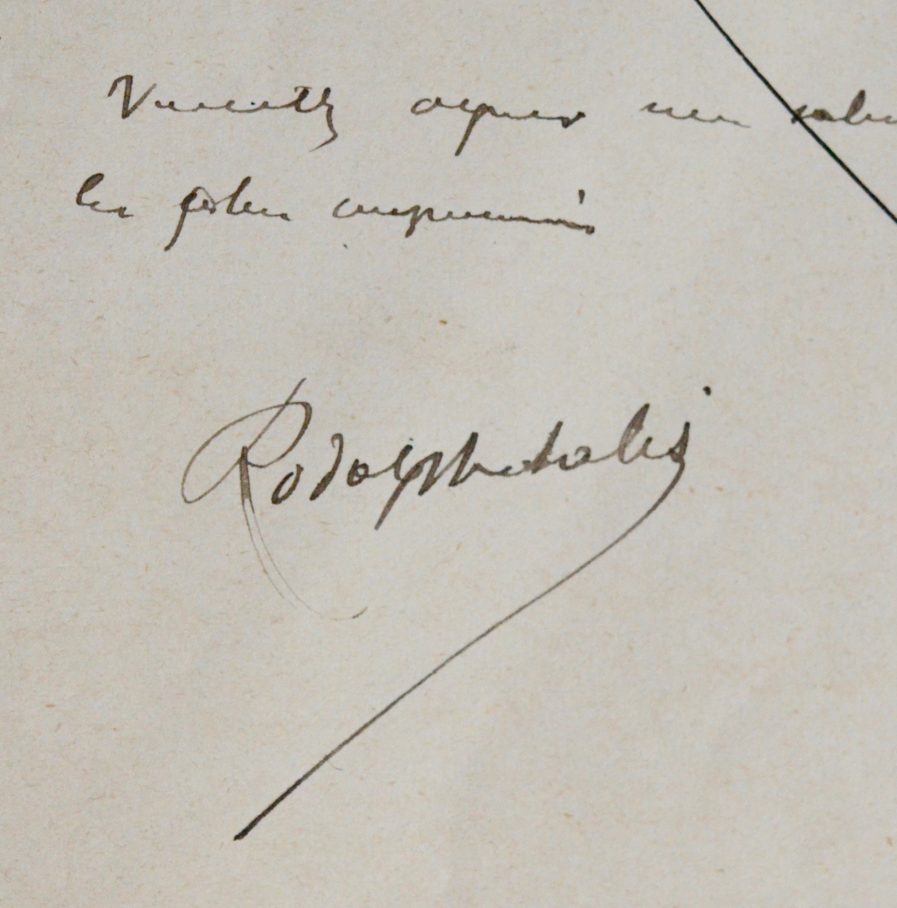 Veuillez agréer mes salu
les plus empressés
Rodolphe Salis